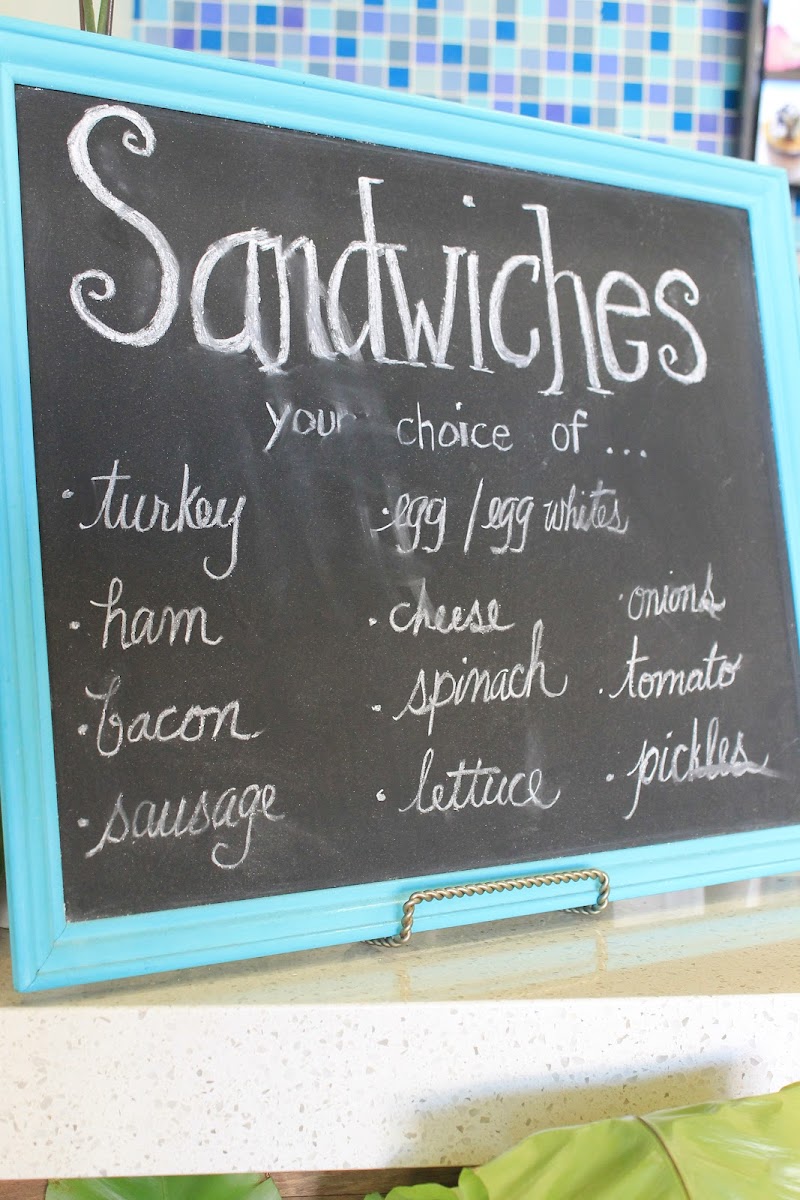 Sandwiches
your choice of ...
• turkey
• ham
• bacon
• sausage
• egg / egg whites
• cheese
• spinach
• lettuce
• onions
• tomato
• pickles